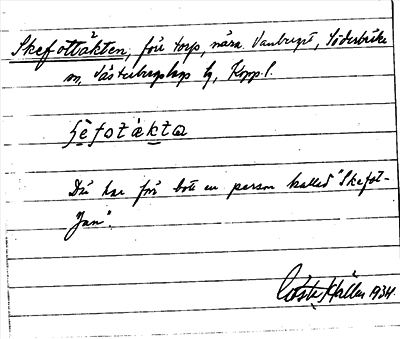 Skefottäkten, förr torp, nära Vanbergs, Söderbärke
sn, Västerbergslags tg, Kopp. l.
ʃèfotäkta
Där har förr bott en person kallad "Skefot-
Jan".
Gösta Hallin 1934.